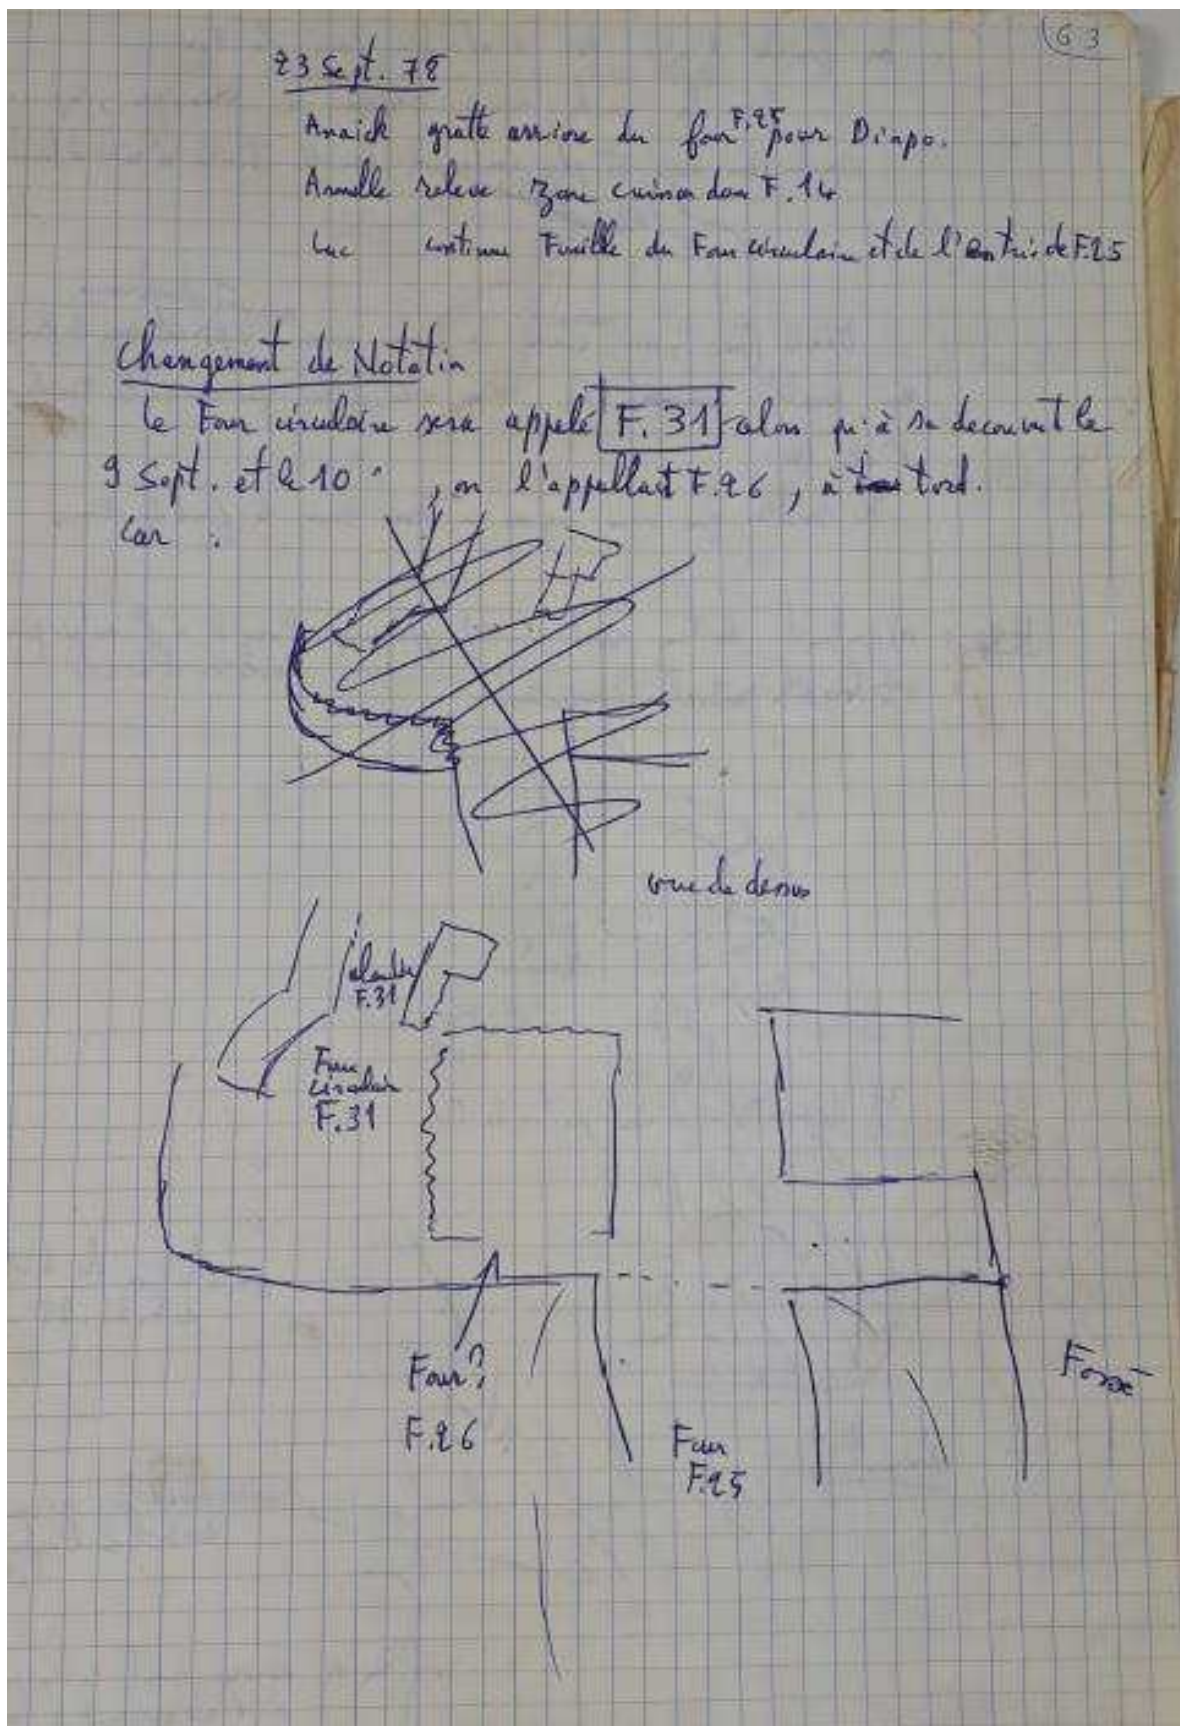 63
23 Sept. 78
Anaick gratte arriere du four F.25 pour Diapo.
Armelle releve zone cuisson dans F.14
Luc continue Fouille du Four circulaire et de l'entrée de F.25
Changement de Notation
Le Four circulaire sera appelé F.31 alors qu'à sa decouverte le
9 Sept. et le 10 " , on l'appellait F.26, à tord.
Car :
vue de dessus
alandier
F.31
Four
circulaire
F.31
Four?
F.26
Four
F.25
Fossé